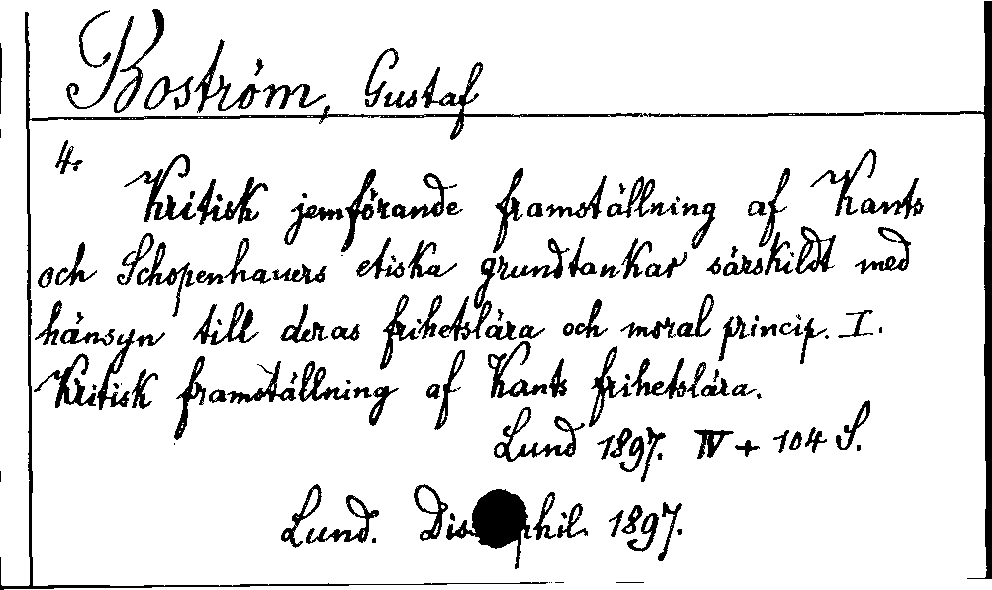 Boström, Gustaf
4.
Kritisk jemförande framställning af Kants
och Schopenhauers etiska grundtankar särskildt med
hänsyn till deras frihetslära och moral princip. I.
Kritisk framställning af Kants frihetslära.
Lund 1897. IV + 104 S.
Lund. Diss. phil. 1897.